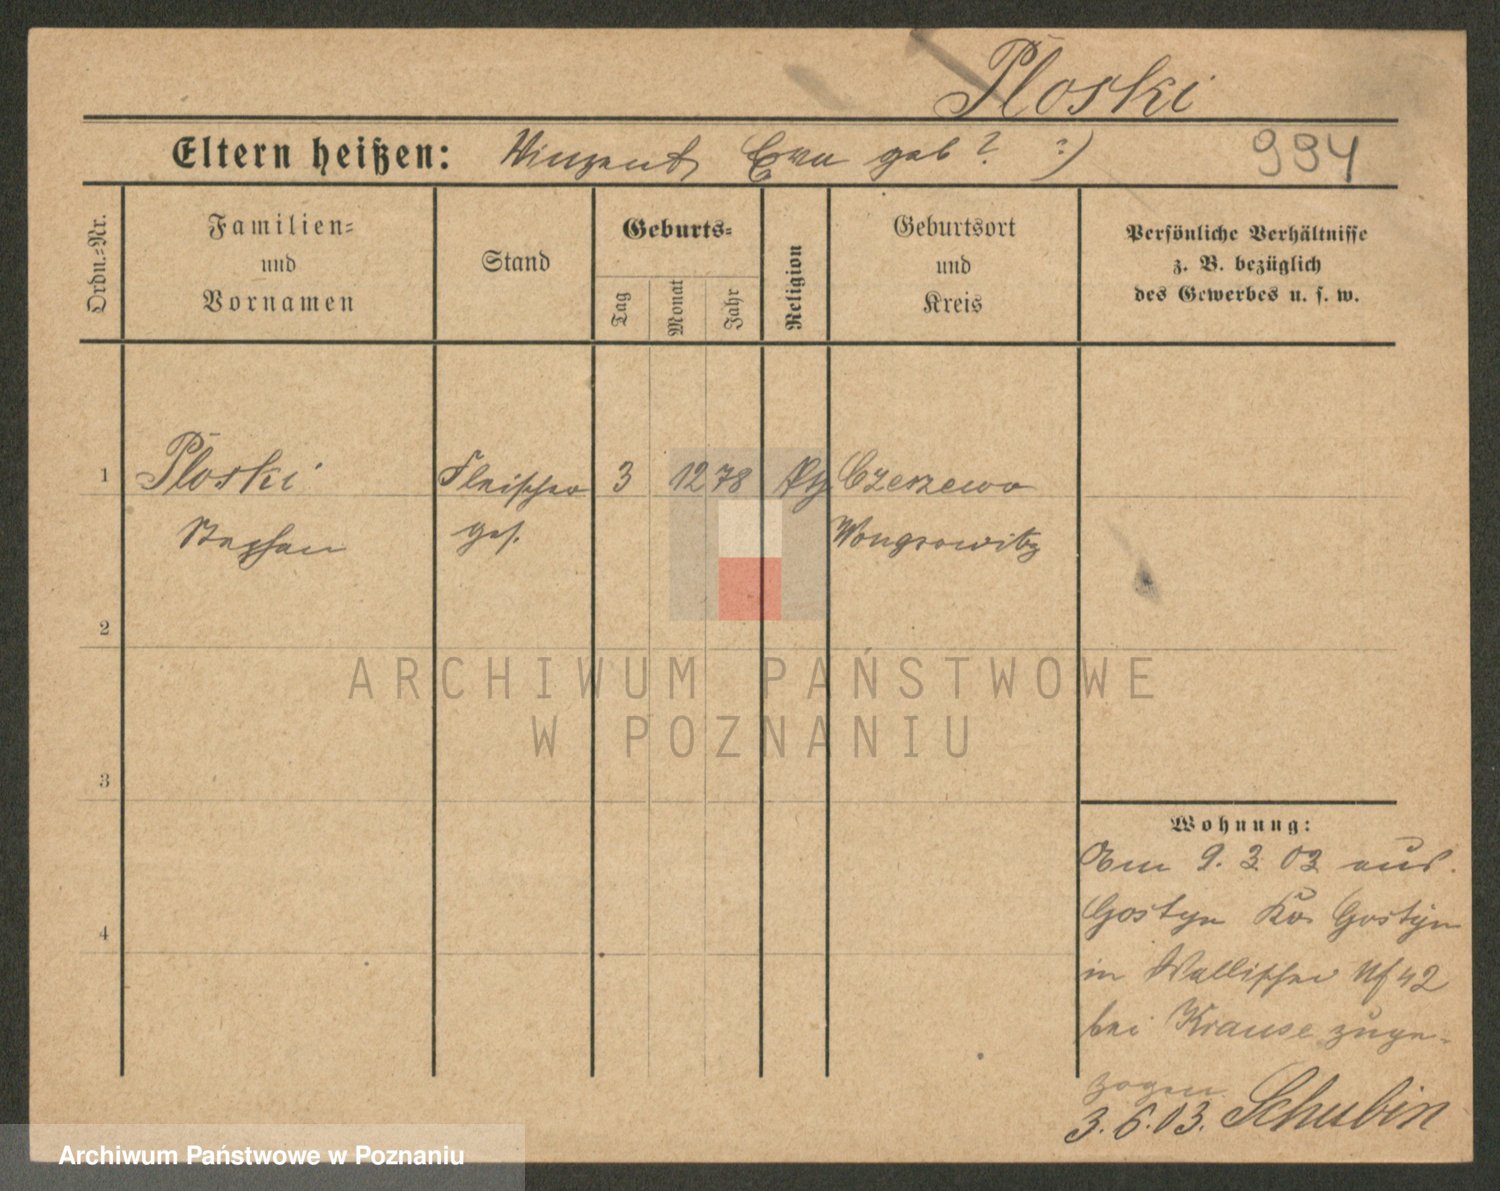 Ploski
Eltern heißen: Vinzent, Eva geb ? ?)
994
Ordn.-Nr.
Familien-
und
Vornamen
Stand
Geburts-
Tag
Monat
Jahr
Religion
Geburtsort
und
Kreis
Persönliche Verhältnisse
z. B. bezüglich
des Gewerbes u. s. w.
1 Ploski Fleischer 3 12 78 kth Czeszewo
Stephan ges. Wongrowitz
2
ARCHIWUM PAŃSTWOWE
W POZNANIU
3
Wohnung:
Am 9. 3 03 aus
Gostyn Kr. Gostyn
in Wallischei 42
bei Krause zuge-
zogen
4
3.6.03. Schubin
Archiwum Państwowe w Poznaniu